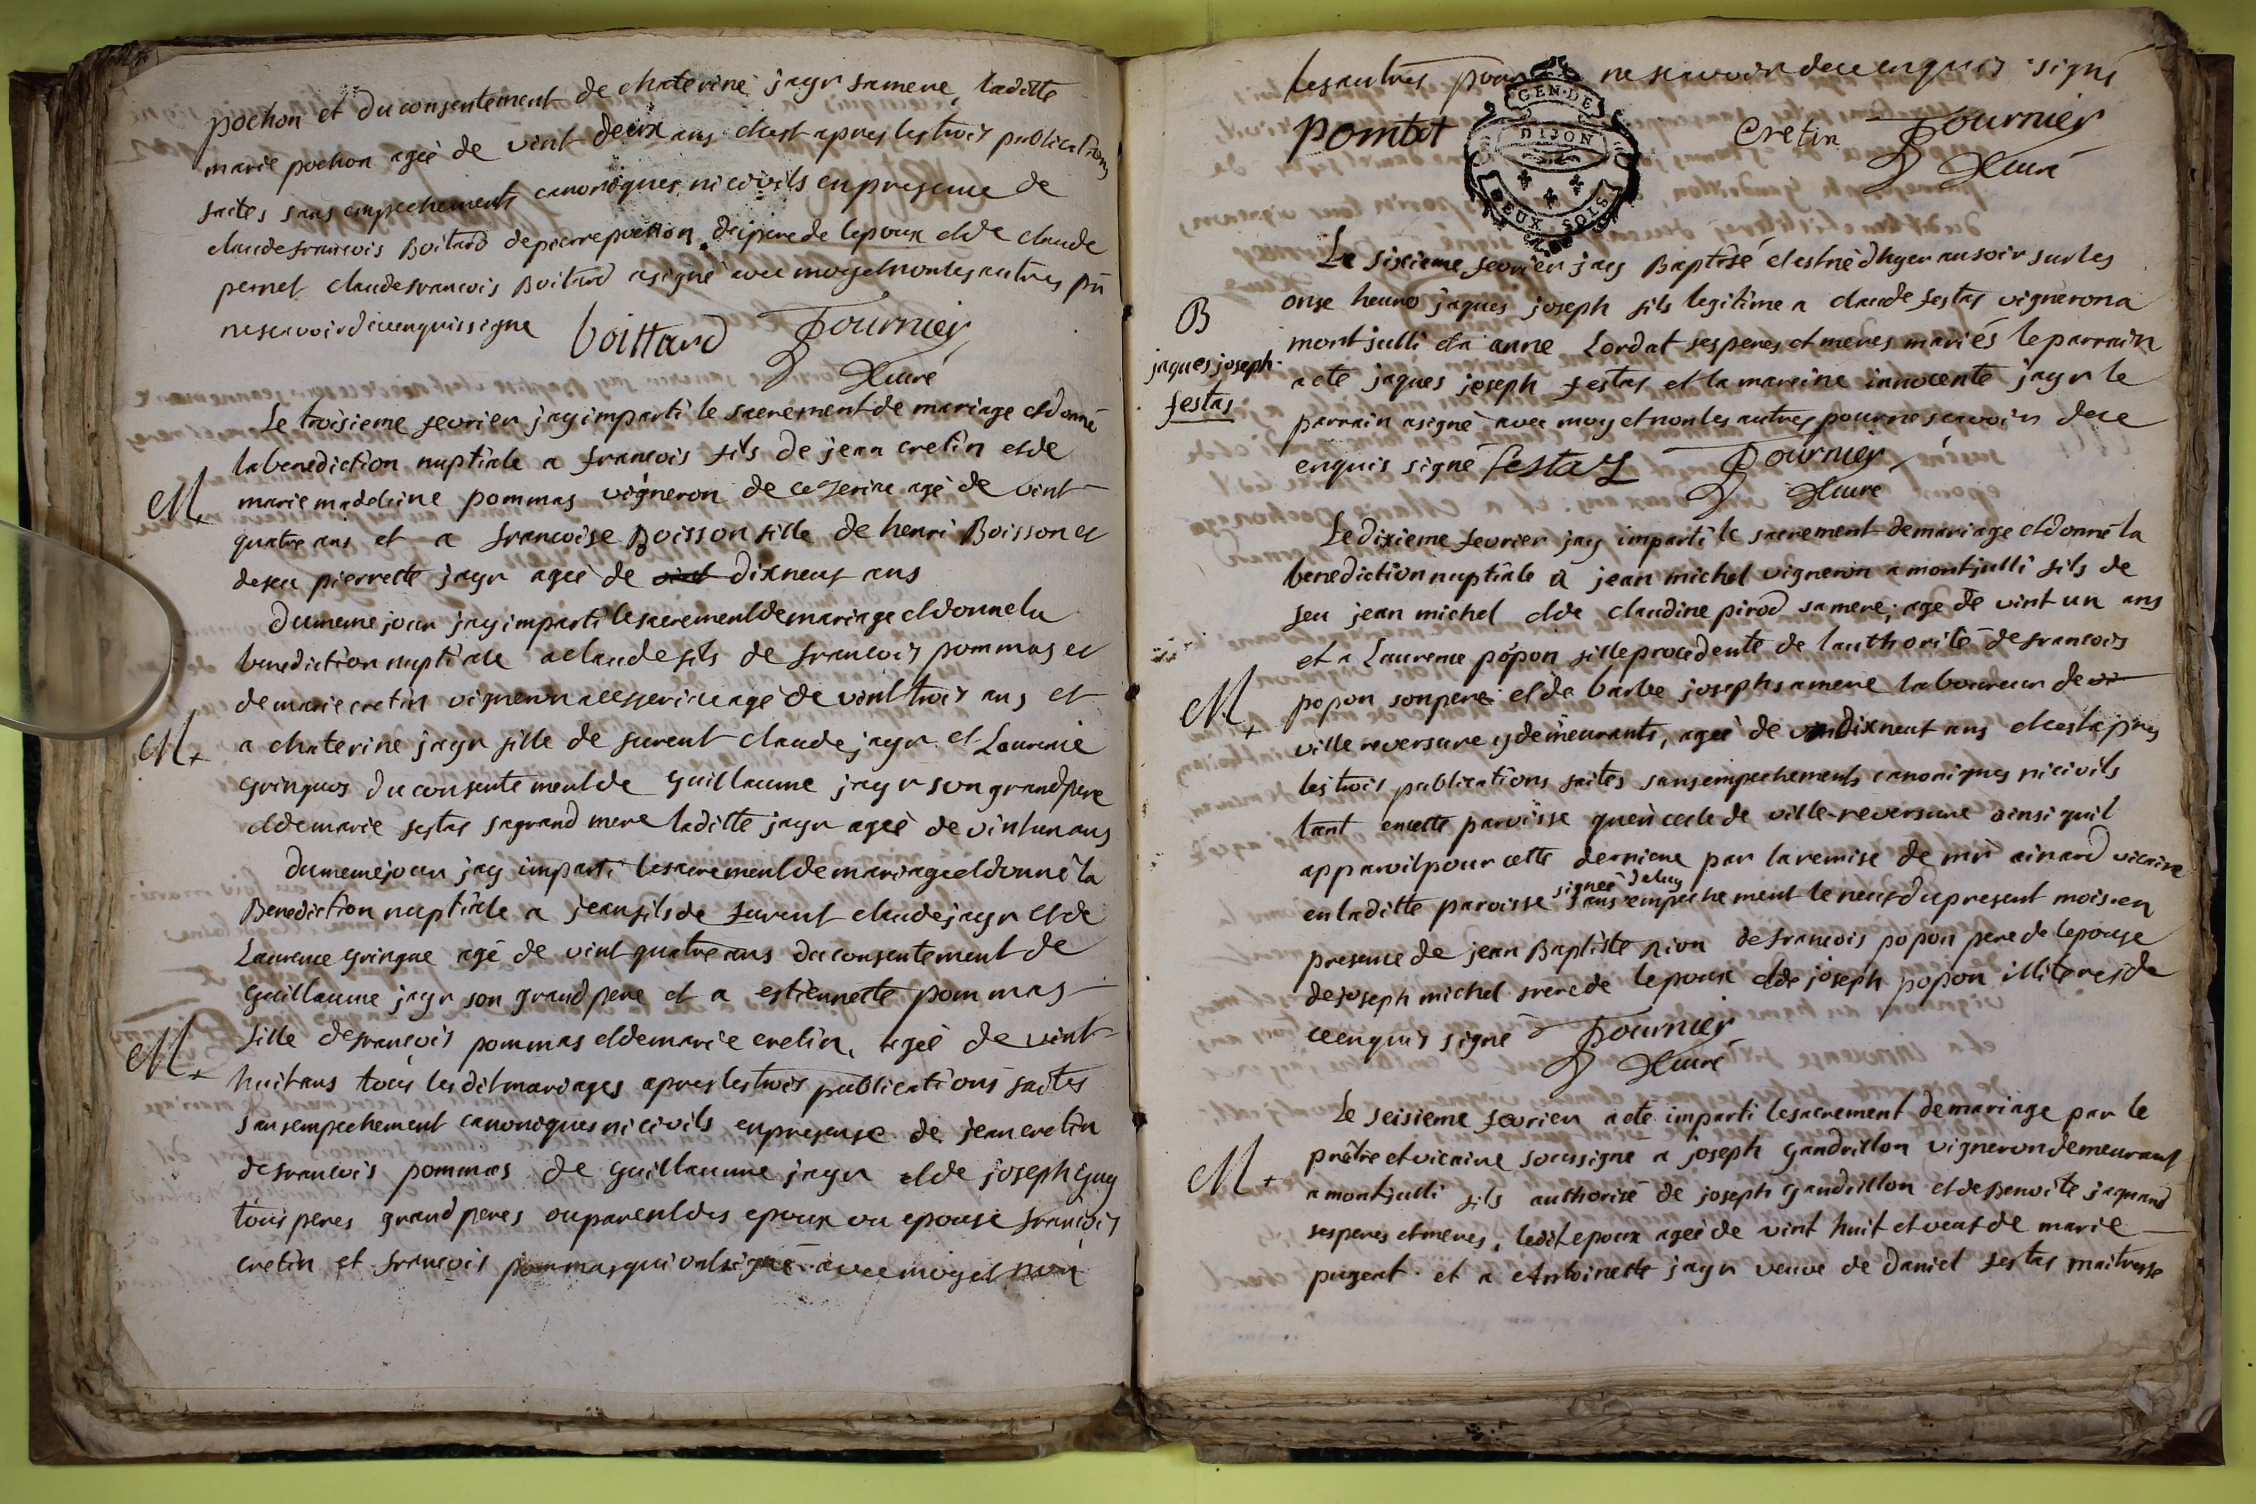 pochon et du consentement de chaterine jayr samere, laditte
marie pochon ageè de vint deux ans cleest apres les trois publications
faites sans empechements canoniques ni civils en presence de
claude francois Boitard de pierre pochon de pere de lepoux et de claude
pernet claude francois Boitard a signé avec moy et non les autres pr
ne scavoir de ce enquis signe boittard Fournier
Curé
Le troisieme fevrier jay imparti le sacrement de mariage et donné
la benediction nuptiale a francois fils de jean cretin et de
M
marie madeleine pommas vigneron de cezeria agé de vint
quatre ans et a francoise Boisson fille de henri Boisson et
de feu pierrette jayr ageè de vint dixneuf ans
du meme jour jay imparti le sacrement de mariage et donne la
benediction nuptiale a claude fils de francois pommas et
de marie cretin vigneron a cesseria agé de vint trois ans et
M
a chaterine jayr fille de furent claude jayr et Laurence
gringuos du consentement de guillaume jayr son grand pere
et de marie festas sa grand mere laditte jayr ageè de vint un ans
du meme jour jay imparti le sacrement de mariage et donné la
Benediction nuptiale a jean fils de furent claude jayr et de
Laurence gringue agé de vint quatre ans du consentement de
guillaume jayr son grand pere et a estiennette pommas
M
fille de francois pommas et de marie cretin, ageè de vint
huit ans tous les dit mariages apres les trois publications faites
sans empechement canoniques ni civils en presense de jean cretin
de francois pommas de guillaume jayr et de joseph guy
tous peres grand peres ou parent des epoux ou epouse francois
cretin et francois pommas qui ont signé avec moy et non
les autres pour ne scavoir de ce enquis signé
GEN. DE DIJON DEUX SOLS
pomat cretin Fournier
Curé
Le sixieme fevrier jay Baptisé et est né dhyer au soir sur les
B
jaques joseph
festas
onse heures jaques joseph fils legitime a claude festas vigneron a
montjulli et a anne Lordat ses peres et meres mariés le parrain
a eté jaques joseph festas et la mareine innocente jayr le
parrain a signé avec moy et non les autres pour ne scavoir de ce
enquis signé festas Fournier
Curé
Le dixieme fevrier jay imparti le sacrement de mariage et donné la
benediction nuptiale a jean michel vigneron a montjulli fils de
feu jean michel et de claudine pirod sa mere, agé de vint un ans
et a Laurence popon fille procedente de lauthorité de francois
M
popon son pere et de barbe joseph sa mere laboureur de vi
ville reversure y demeurants, ageè de vin dixneuf ans et ce est apres
les trois publications faites sans empechements canoniques ni civils
tant en cette paroisse quen celle de ville-reversure ainsi quil
apparoit pour cette derniere par la remise de mr ainard vicaire
en laditte paroisse signeé de luy sans empechement le neuf du present mois en
presence de jean Baptiste pion de francois popon pere de lepouse
de joseph michel frere de lepoux et de joseph popon illiteres de
ce enquis signé Fournier
Curé
Le seisieme fevrier a eté imparti le sacrement de mariage par le
M
prêtre et vicaire soussigné a joseph gandrillon vigneron demeurant
a montjulli fils authorisé de joseph gandrillon et de penoite jaquand
ses peres et meres, ledit epoux ageè de vint huit et veuf de marie
pugeat et a Antoinette jayr veuve de daniel festas maitresse